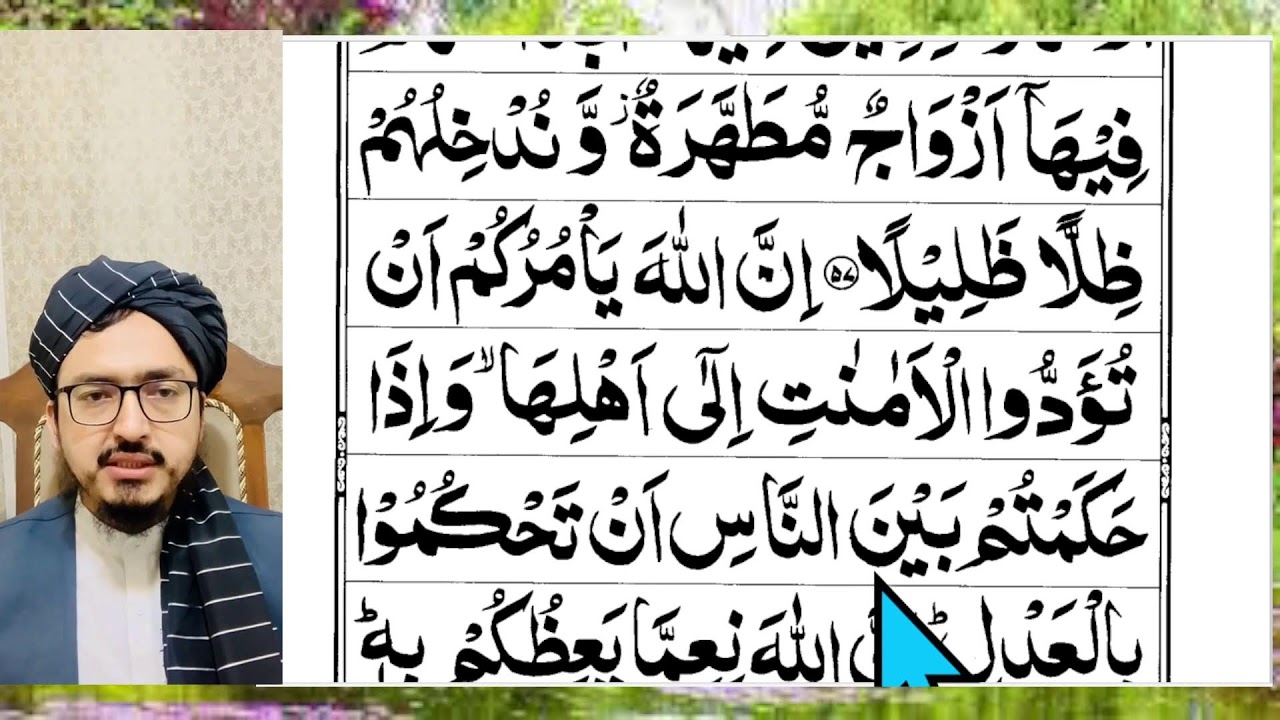 فِيْهَاۤ اَزْوَاجٌ مُّطَهَّرَةٌ ز وَّ نُدْخِلُهُمْ
ظِلًّا ظَلِيْلًا ﴿۵۷﴾ اِنَّ اللّٰهَ يَاْمُرُكُمْ اَنْ
تُؤَدُّوا الْاَمٰنٰتِ اِلٰۤى اَهْلِهَا ۙ وَاِذَا
حَكَمْتُمْ بَيْنَ النَّاسِ اَنْ تَحْكُمُوْا
بِالْعَدْلِ ؕ اللّٰهَ نِعِمَّا يَعِظُكُمْ بِهٖ ؕ